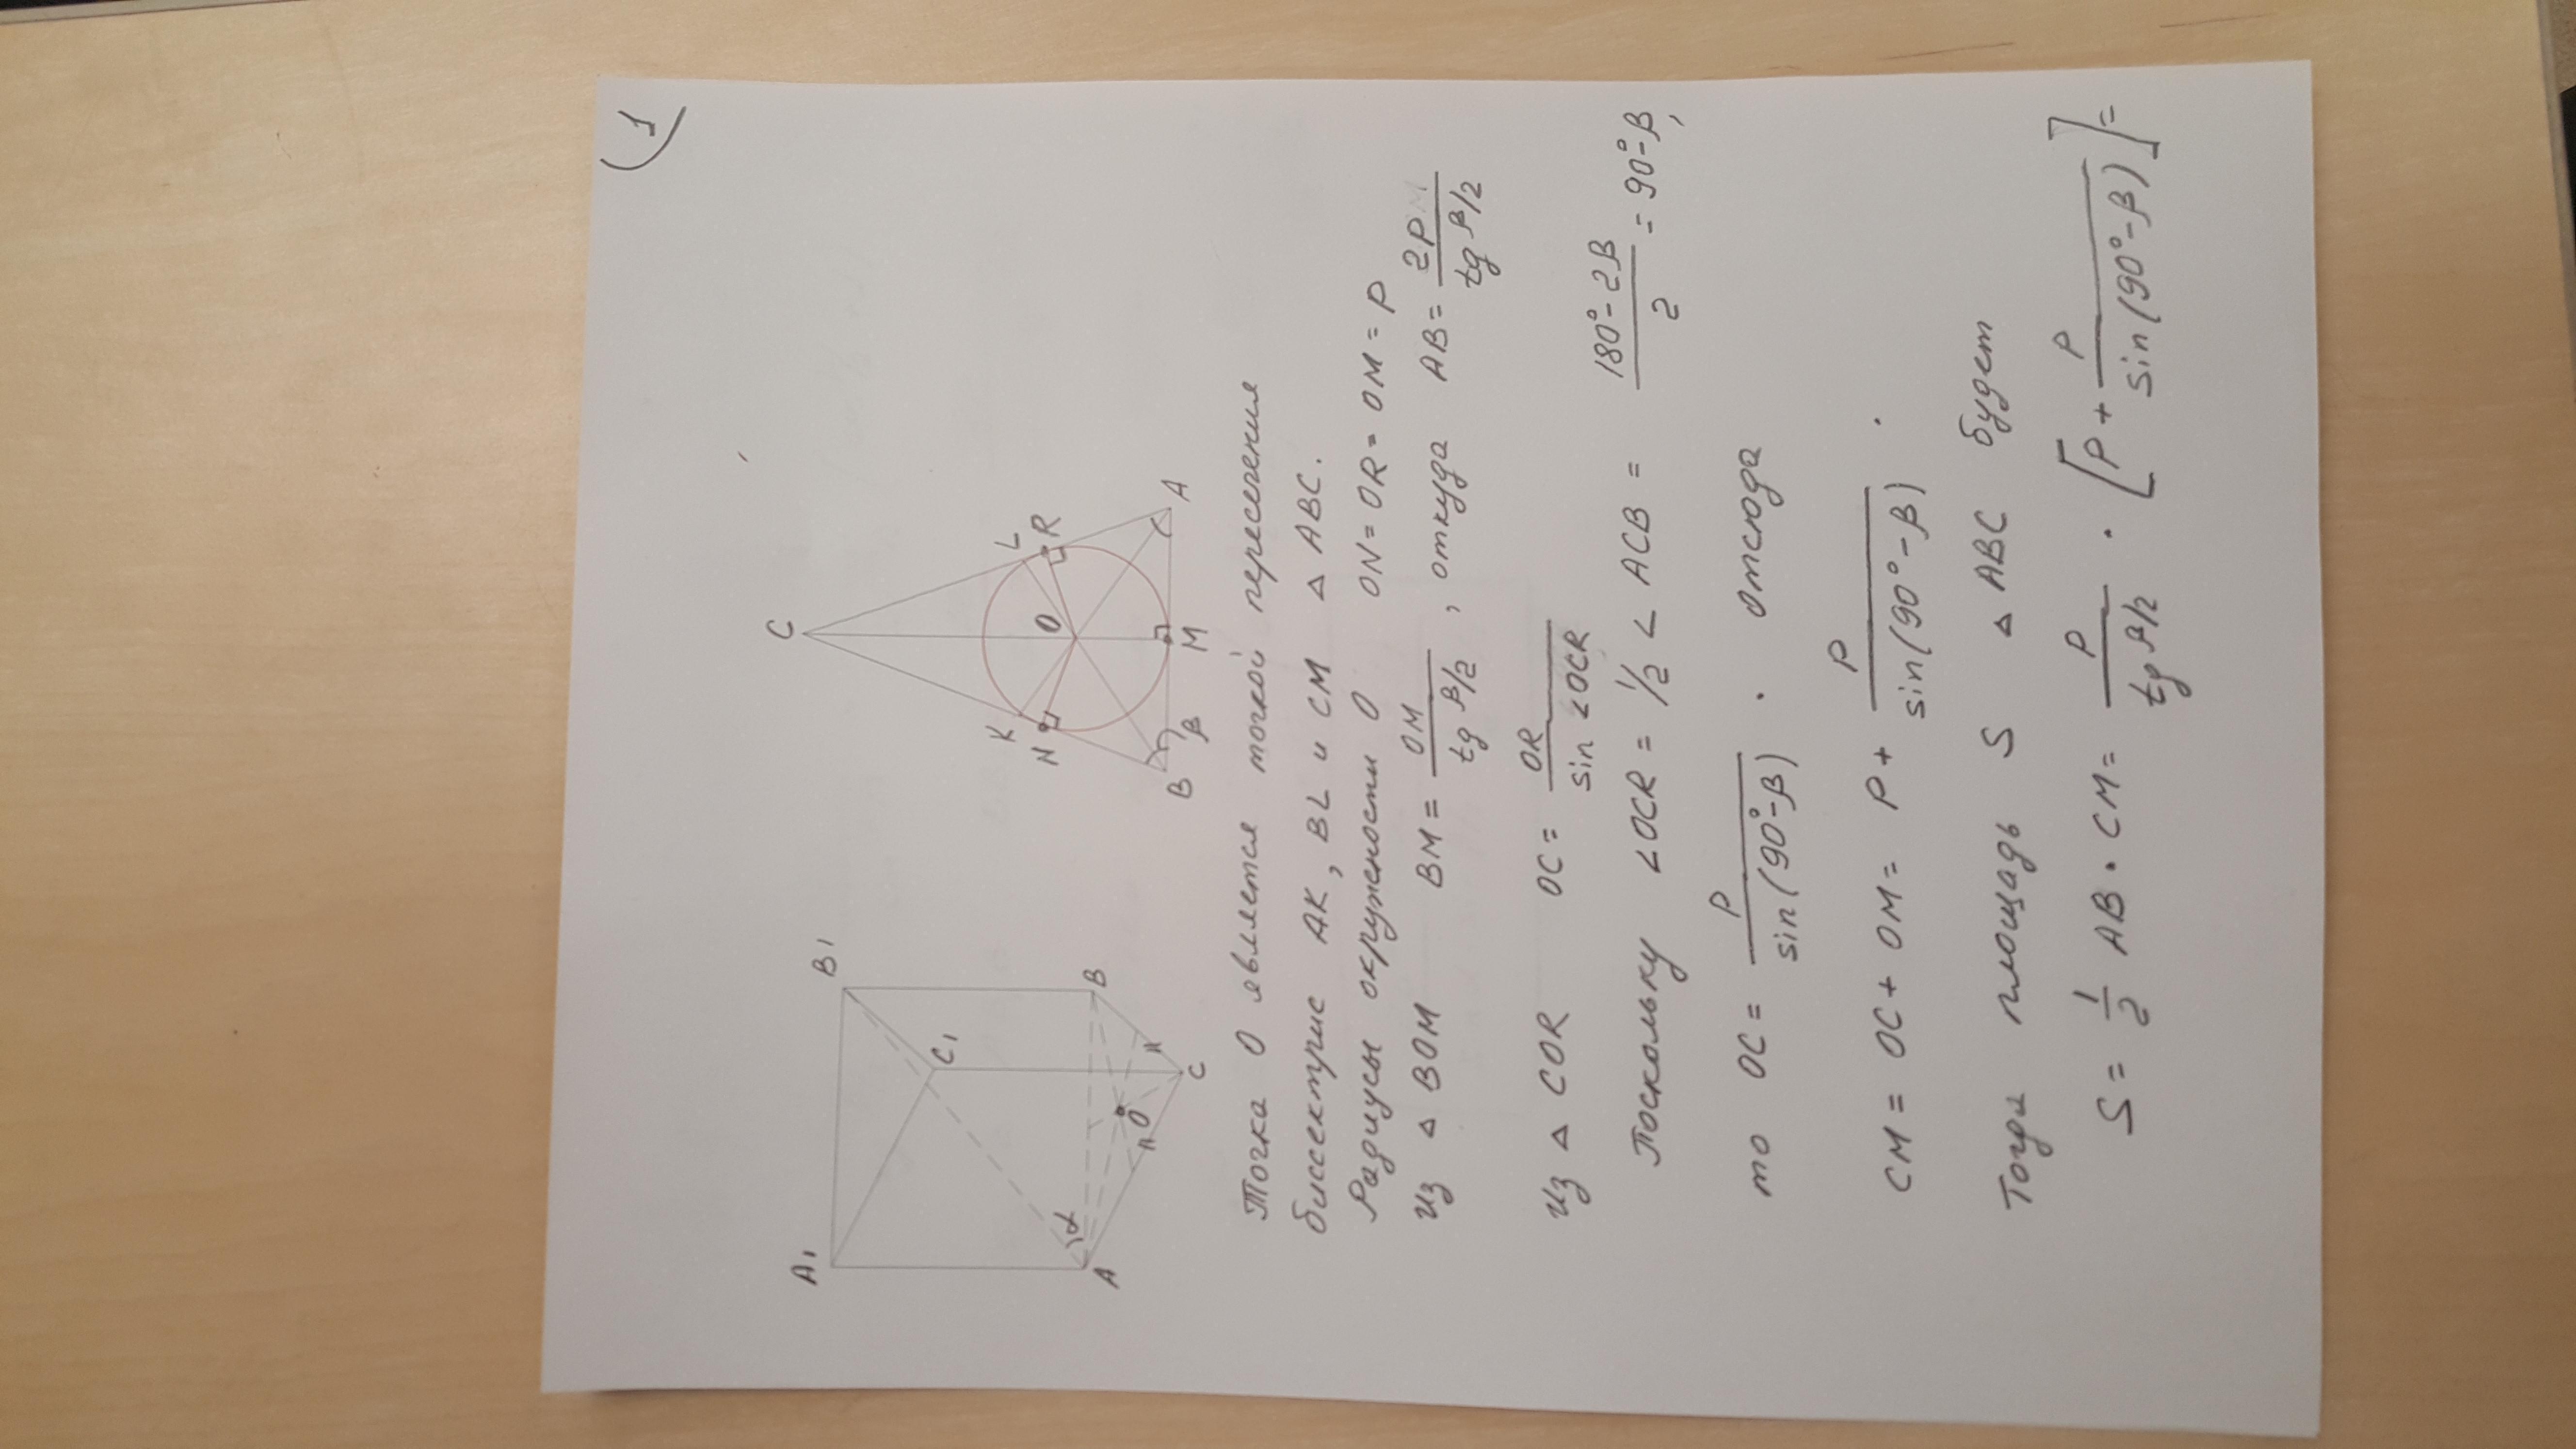 1)
A1 B1 C1 A B C O α
C K L N R O B M A β
Точка O является точкой пересечения
биссектрис AK, BL и CM △ ABC.
Радиусы окружности O ON = OR = OM = P
Из △ BOM BM = OM / tg β/2, откуда AB = 2P / tg β/2
Из △ COR OC = OR / sin ∠OCR
Поскольку ∠OCR = 1/2 ∠ ACB = (180° - 2β) / 2 = 90° - β,
то OC = P / sin(90° - β). Отсюда
CM = OC + OM = P + P / sin(90° - β).
Тогда площадь S △ ABC будет
S = 1/2 AB · CM = P / tg β/2 · [P + P / sin(90° - β)] =